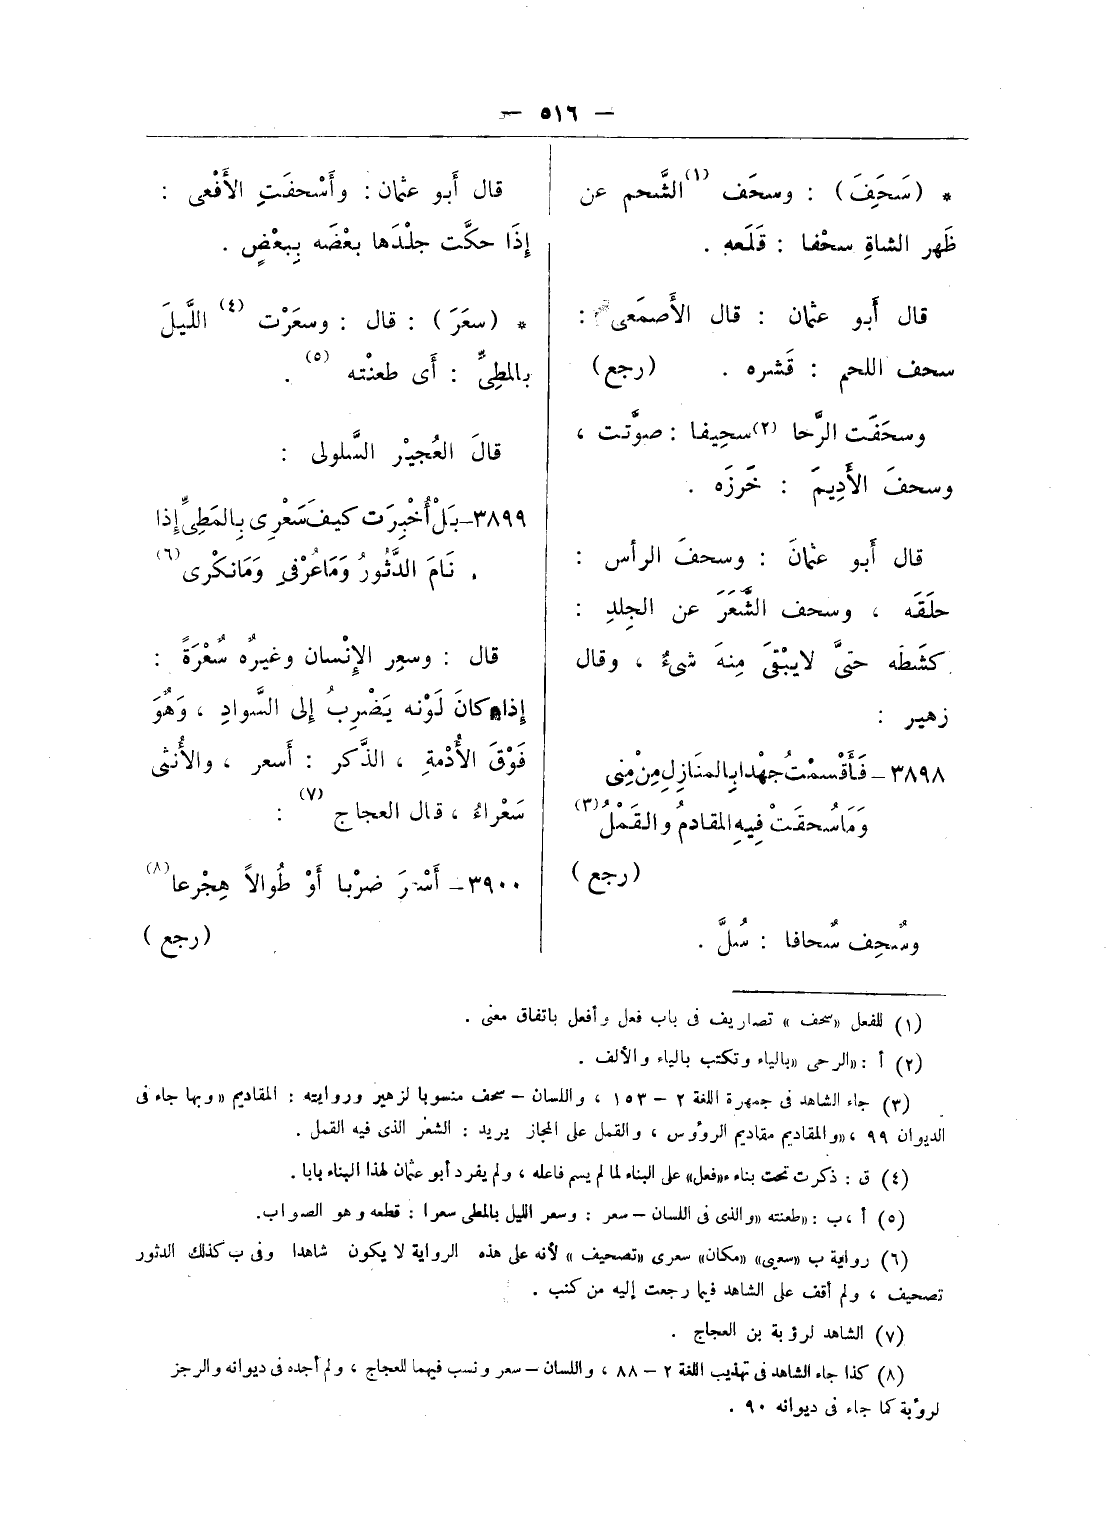 — ٥١٦ —
* (سَحَفَ) : وسحَف (١) الشَّحم عن
ظَهر الشاةِ سحْفا : قَلَعه .
قال أَبو عثمان : قال الأَصمَعى :
سحف اللحم : قَشره . (رجع)
وسحَفَت الرَّحا (٢) سحِيفا : صوَّتت ،
وسحفَ الأَدِيمَ : خَرزَه .
قال أَبو عثمانَ : وسحفَ الرأس :
حلَقَه ، وسحف الشَّعَرَ عن الجِلدِ :
كشَطَه حتىَّ لايبْقىَ مِنهَ شىءُ ، وقال
زهير :
٣٨٩٨ – فَأَقْسمْتُ جهْدا بِالمنَازِلِ مِن مْنِى
وَمَا سُحقَتْ فِيهِ المقَادمُ والقَمْلُ (٣)
(رجع)
وسُحِف سُحافا : سُلَّ .
قال أَبو عثمان : وأَسْحفَتِ الأَفْعى :
إِذَا حكَّت جلْدَها بعْضَه بِبعْضٍ .
* (سعَرَ) : قال : وسعَرْت (٤) الليلَ
بالمطِىِّ : أَى طعنْته (٥) .
قالَ العُجيْر السَّلولى :
٣٨٩٩ – بَلْ أُخْبِرَت كيفَ سَعْرِى بِالمَطِىِّ إِذا
نَامَ الدَّثُورُ وَمَا عُرْفىِ وَمَا نكْرى (٦)
قال : وسعِر الإِنْسان وغيرُه سُعْرَةً :
إِذا كانَ لَوْنه يَضْرِبُ إِلى السَّوادِ ، وَهُوَ
فوْقَ الأُدْمةِ ، الذَّكر : أَسعر ، والأُنثى
سَعْراءُ ، قال العجاج (٧) :
٣٩٠٠ – أَسْعَرَ ضرْبا أَوْ طُوالاً هِجْرعا (٨)
(رجع)
(١) للفعل «سحف» تصاريف فى باب فعل وأفعل باتفاق معنى .
(٢) أ : «الرحى» بالياء وتكتب بالياء والألف .
(٣) جاء الشاهد فى جمهرة اللغة ٢ – ١٥٣ ، واللسان – سحف منسوبا لزهير وروايته : المقاديم «وبها جاء فى
الديوان ٩٩ ، «والمقاديم مقاديم الرؤوس ، والقمل على المجاز يريد : الشعر الذى فيه القمل .
(٤) ق : ذكرت تحت بناء «فعل» على البناء لما لم يسم فاعله ، ولم يفرد أبو عثمان لهذا البناء بابا .
(٥) أ ، ب : «طعنته» والذى فى اللسان – سعر : وسعر الليل بالمطى سعرا : قطعه وهو الصواب.
(٦) رواية ب «سعيى» «مكان» سعرى «تصحيف» لأنه على هذه الرواية لا يكون شاهدا وفى ب كذلك الدثور
تصحيف ، ولم أقف على الشاهد فيما رجعت إليه من كتب .
(٧) الشاهد لرؤبة بن العجاج .
(٨) كذا جاء الشاهد فى تهذيب اللغة ٢ – ٨٨ ، واللسان – سعر ونسب فيهما للعجاج ، ولم أجده فى ديوانه والرجز
لرؤبة كما جاء فى ديوانه ٩٠ .